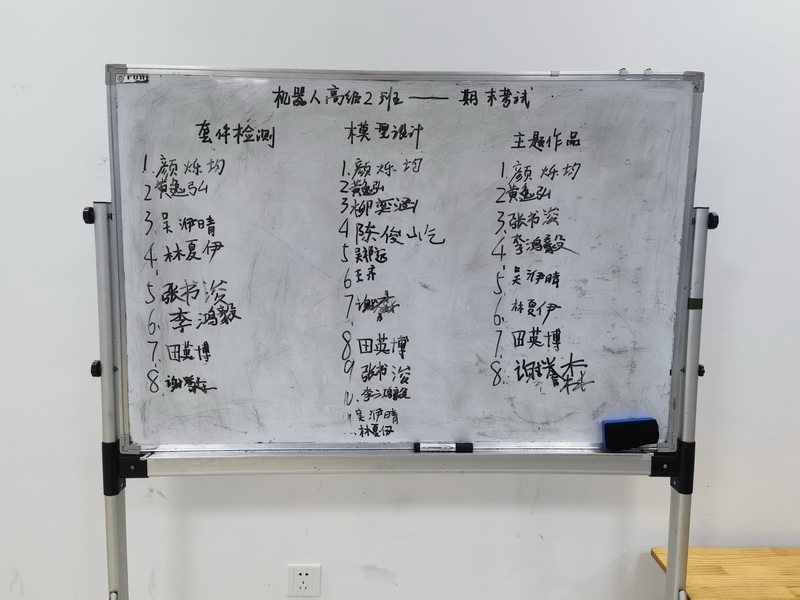 机器人高级2班——期末考试
套件检测
1.颜烁均
2黄逸弘
3.吴洢晴
4.林夏伊
5张书浚
6.李鸿毅
7.田英博
8.谢
模型设计
1.颜烁均
2黄逸弘
3柳奕涵
4陈俊屹
5吴祁远
6王
7谢
8田英博
9张书浚
10李鸿毅
11吴洢晴
12林夏伊
主题作品
1.颜烁均
2黄逸弘
3.张书浚
4李鸿毅
5吴洢晴
6.林夏伊
7.田英博
8.谢